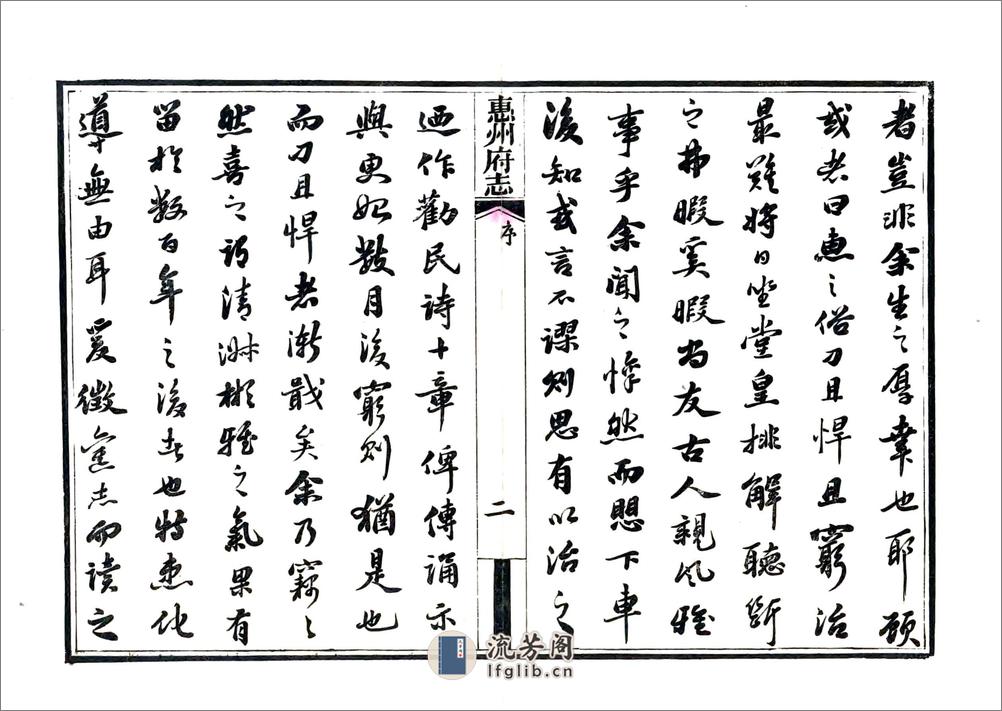 者豈非余生之厚幸也耶顧
或者曰惠之俗刀且悍且窮治
最難將日坐堂皇排解聽斷
之弗暇奚暇尚友古人親風雅
事乎余聞之悸然而思下車
後知或言不謬則思有以治之
惠州府志
序
二
迺作勸民詩十章俾傳誦示
與更始數月後窮則猶是也
而刀且悍者漸戢矣余乃竊々
然喜之謂清淑彬雅之氣果有
留於數百年之後者也特患化
導無由耳爰徵舊志而讀之
流芳阁
lfglib.cn